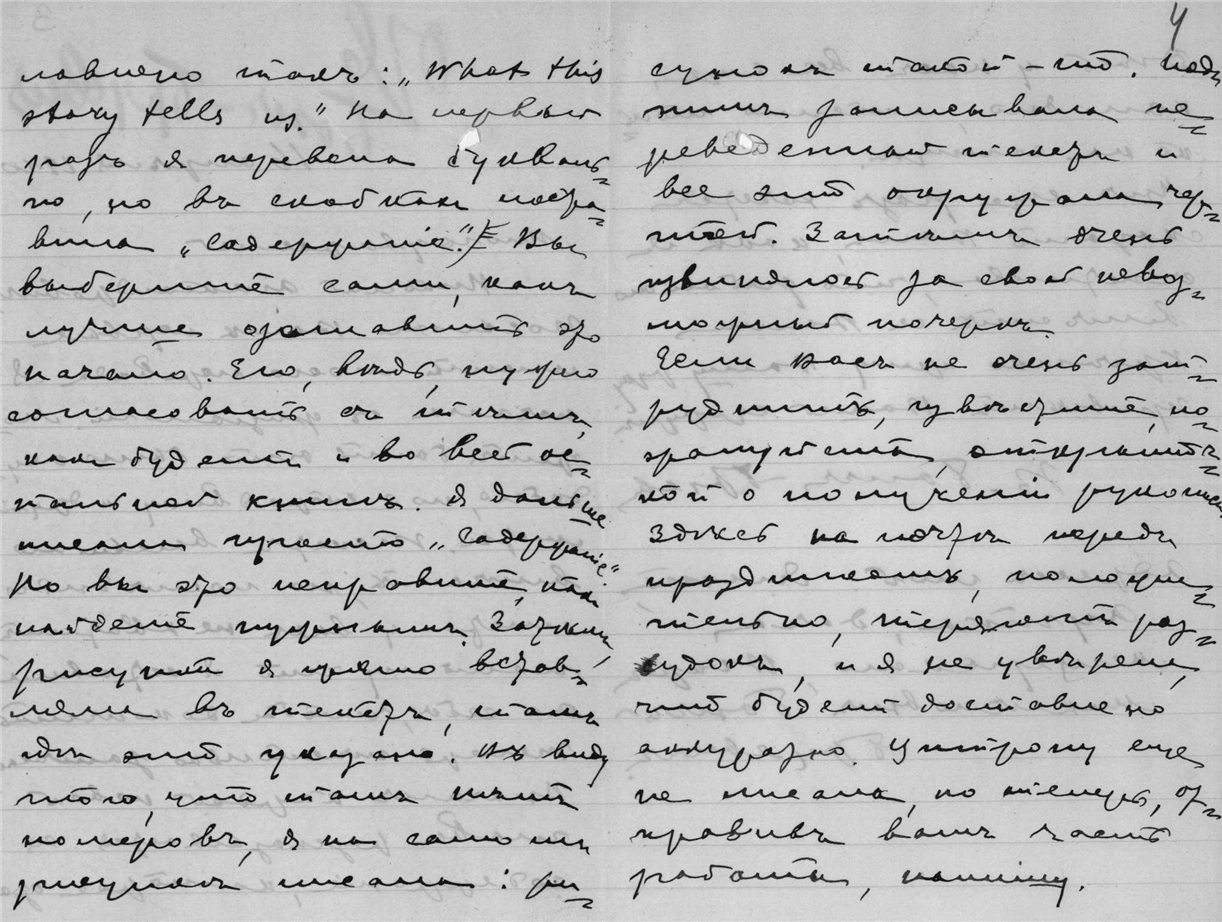 4
лавлено такъ: „What this
story tells us.“ На первый
разъ я перевела буквалъ=
но, но въ скобкахъ поста=
вила „содержаніе“.) Вы
выберите сами, какъ
лучше озаглавить это
начало. Его, вѣдь, нужно
согласовать съ тѣмъ,
какъ будетъ и во всей ос=
тальной книгѣ. Я дальше
писала просто „содержаніе“.
Но вы это исправите, какъ
найдете нужнымъ. Затѣмъ,
рисунки я прямо встав=
ляла въ текстъ, тамъ
гдѣ это указано. Въ виду
того, что тамъ нѣтъ
номеровъ, я на самомъ
рисункѣ писала: ри=
сунокъ такой-то. Подъ
нимъ записывала пе=
реведенный текстъ и
все это окружала чер=
той. Затѣмъ очень
извиняюсь за свой невоз=
можный почеркъ.
Если васъ не очень зат=
руднитъ, извѣстите, по=
жалуйста, открыт=
кой о полученіи рукописи
Здѣсь на почтѣ передъ
праздниками, положи=
тельно, теряютъ раз=
судокъ, и я не увѣрена,
что будетъ доставлено
аккуратно. Цитрону еще
не писала, но теперь, от=
правивъ вамъ часть
работы, напишу.